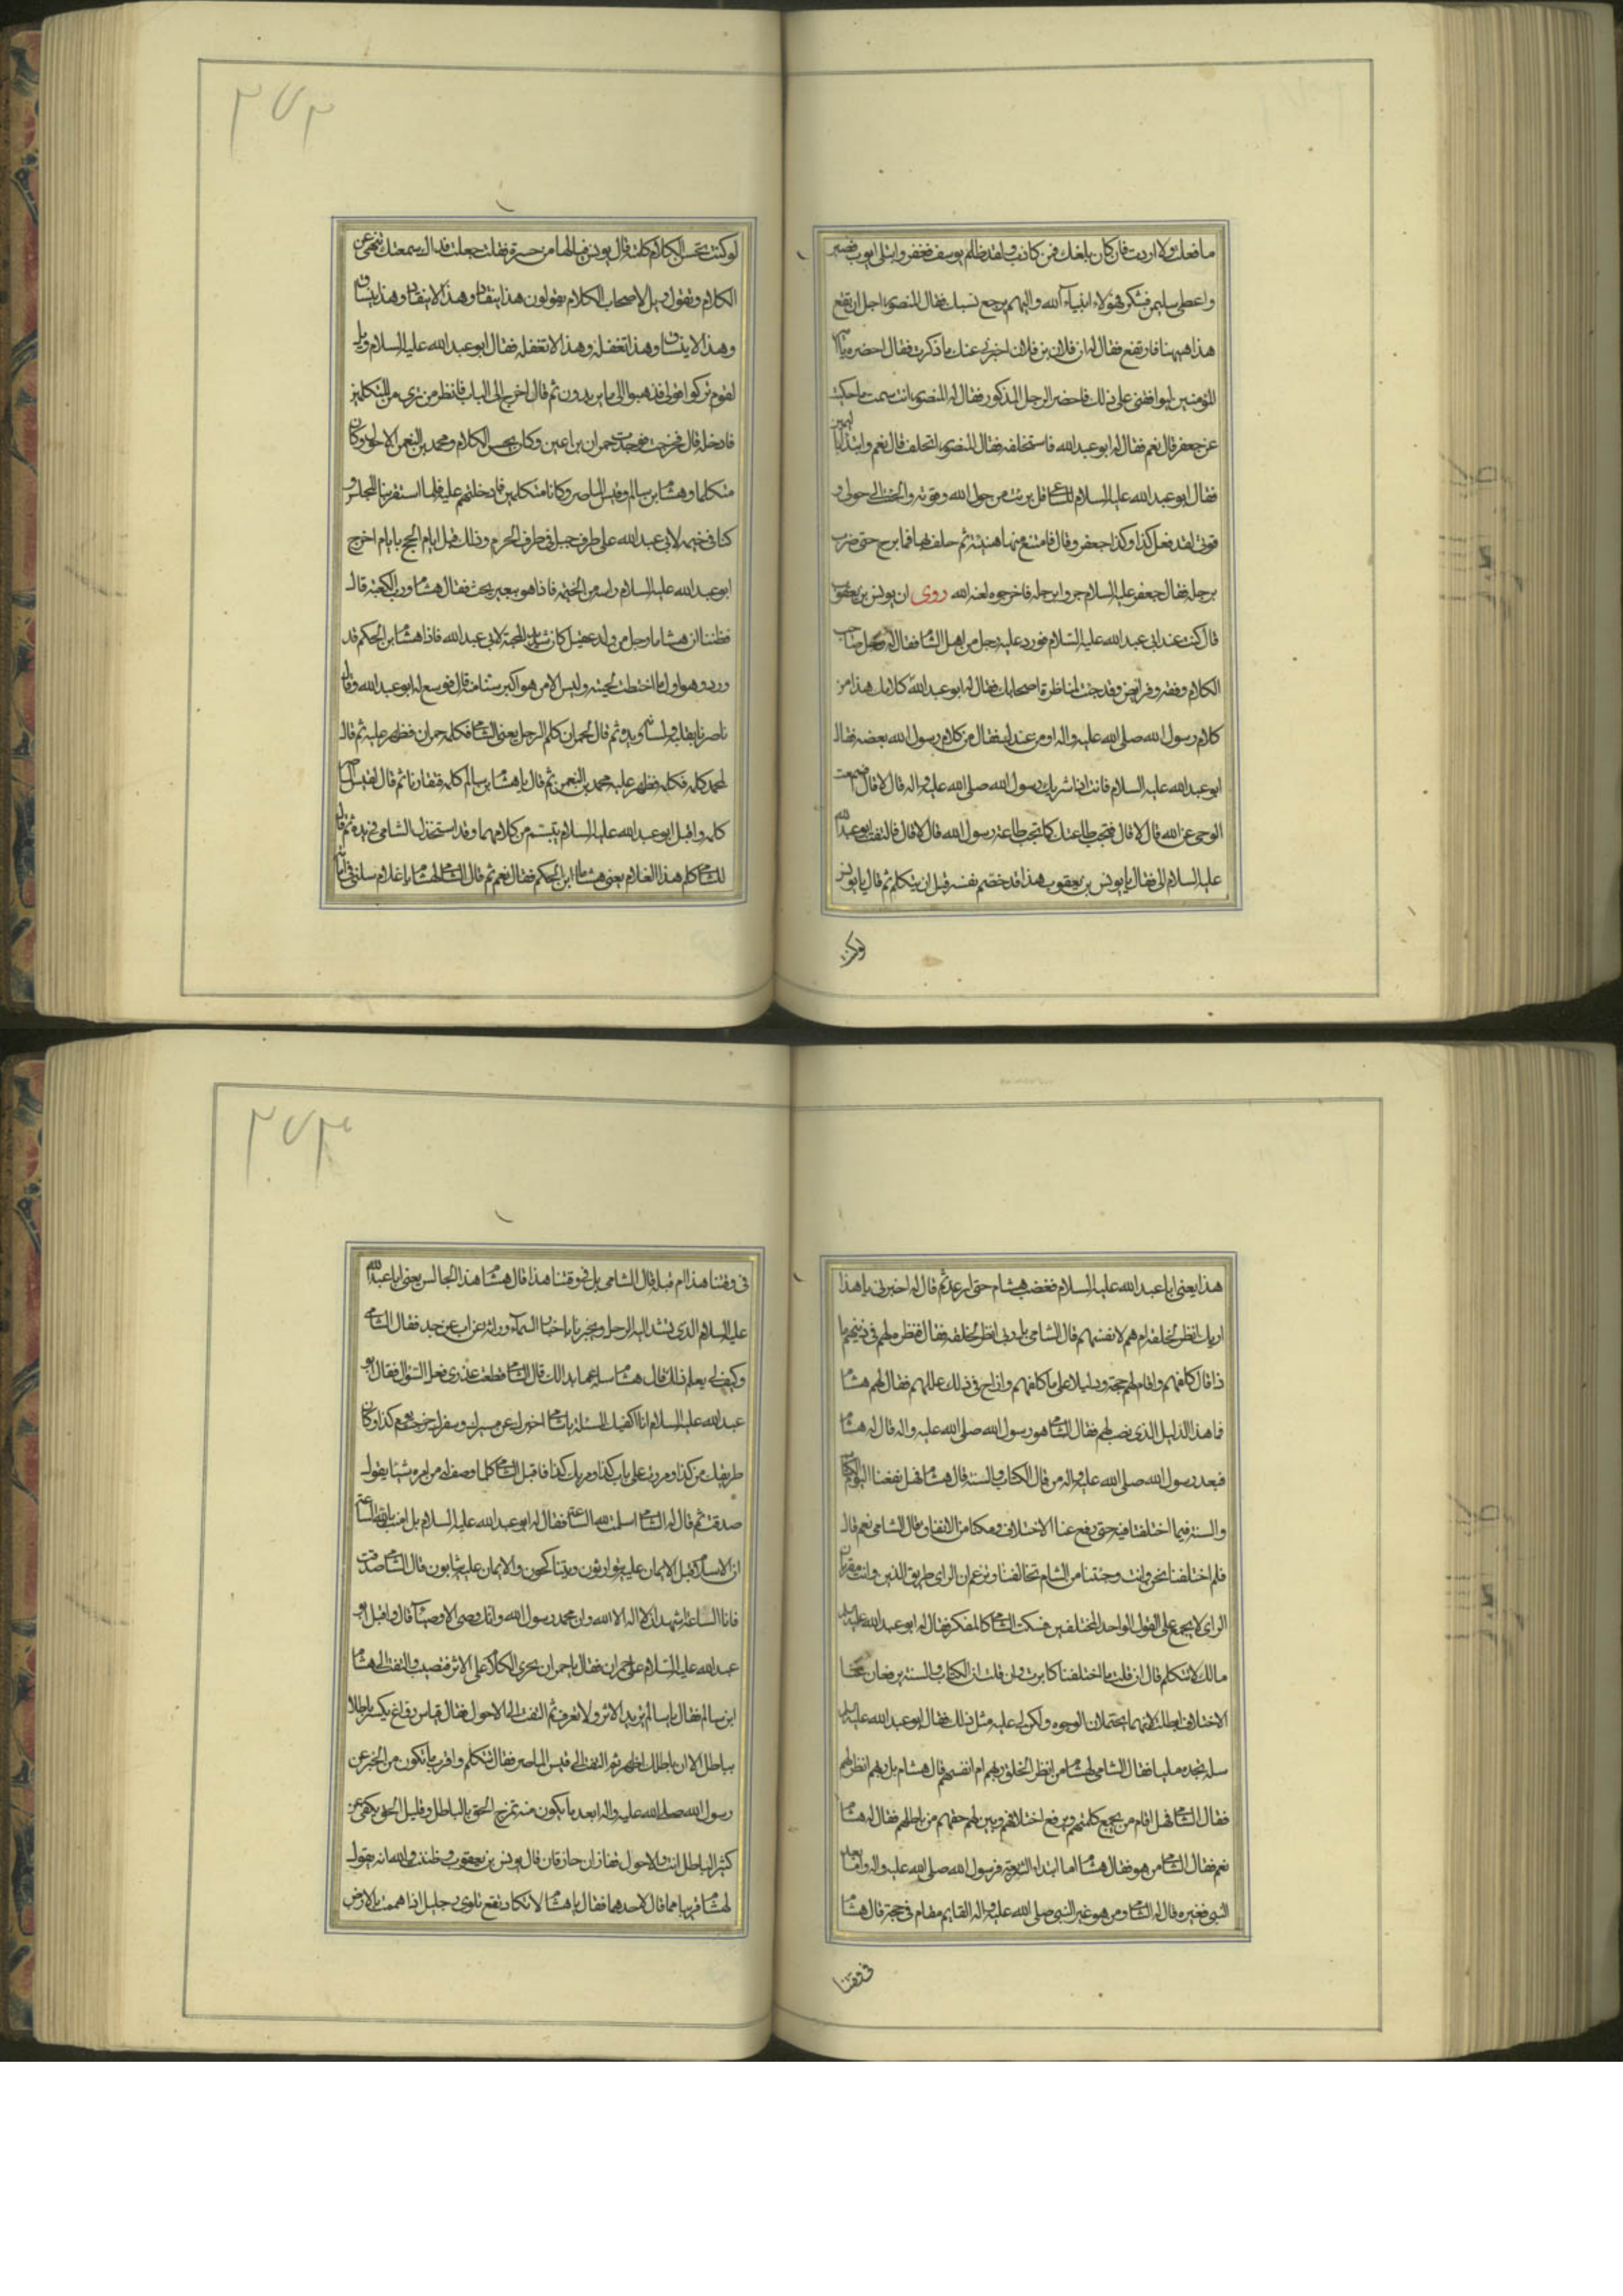 ما فعلت ولا اردت فان كان بلغك فمن كاذب ولقد ظلم يوسف فغفر وابتلى ايوب فصبر
واعطى سليمن فشكر فهؤلاء انبياء الله واليهم يرجع نسبك فقال المنصور اجل ارتفع
هذا هيهنا فارتفع فقال له ان فلان بن فلان اخبرني عنك ما ذكرت فقال احضره يا امير
المؤمنين ليوافقني على ذلك فاحضر الرجل المذكور فقال له المنصور انت سمعت ما حكيت
عن جعفر قال نعم فقال له ابو عبد الله فاستحلفه فقال المنصور اتحلف قال نعم وابتدا باليمين
فقال ابو عبد الله عليه السلام قل برئت من حول الله وقوته والتجئت الى حولي و
قوتي لقد فعل كذا وكذا جعفر وقال فامتنع منها هنيئة ثم حلف بها فما برح حتى ضرب
برجله فقال جعفر عليه السلام جروا برجله فاخرجوه لعنه الله روى ان يونس بن يعقوب
قال كنت عند ابي عبد الله عليه السلام فورد عليه رجل من اهل الشام فقال له رجل صاحب
الكلام وفقه وفرايض وقد جئت لمناظرة اصحابك فقال له ابو عبد الله كلامك هذا من
كلام رسول الله صلى الله عليه واله او من عندك فقال من كلام رسول الله بعضه فقال
ابو عبد الله عليه السلام فانت اذا شريك رسول الله صلى الله عليه واله قال لا قال فسمعت
الوحي عن الله قال لا قال فتجب طاعتك كما تجب طاعة رسول الله قال لا قال فالتفت ابو عبد الله
عليه السلام الي فقال يا يونس بن يعقوب هذا قد خصم نفسه قبل ان يتكلم ثم قال يا يونس
لو كنت
۳۷۲
لو كنت تحسن الكلام كلمته قال يونس فيالها من حسرة فقلت جعلت فداك سمعتك تنهى عن
الكلام وتقول ويل لاصحاب الكلام يقولون هذا ينقاد وهذا لا ينقاد وهذا ينساق
وهذا لا ينساق وهذا نعقله وهذا لا نعقله فقال ابو عبد الله عليه السلام ويل
لقوم تركوا قولي فذهبوا الى ما يريدون ثم قال اخرج الى الباب فانظر من ترى من المتكلمين
فادخله قال فخرجت فوجدت حمران بن اعين وكان يحسن الكلام ومحمد بن النعمن الاحول وكان
متكلما وهشام بن سالم وقيس الماصر وكانا متكلمين فادخلتهم عليه فلما استقر بنا المجلس و
كنا في خيمه لابي عبد الله على طرف جبل في طرف الحرم وذلك قبل ايام الحج بايام اخرج
ابو عبد الله عليه السلام راسه من الخيمه فاذا هو ببعير يخب فقال هشام ورب الكعبة قال
فظننا ان هشاما رجل من ولد عقيل كان شديد المحبة لابي عبد الله فاذا هشام بن الحكم قد
ورد وهو اول ما اختطت لحيته وليس الا من هو اكبر سنا منه قال فوسع له ابو عبد الله وقال
ناصرنا بقلبه ولسانه ويده ثم قال لحمران كلم الرجل يعني الشامي فكلمه حمران فظهر عليه ثم قال
لمحمد كلمه فكلمه فظهر عليه محمد بن النعمن ثم قال يا هشام بن سالم كلمه فتقارنا ثم قال لقيس الماصر
كلمه واقبل ابو عبد الله عليه السلام يتبسم من كلامهما وقد استخذل الشامي في يده ثم قال
للشامي كلم هذا الغلام يعني هشام ابن الحكم فقال نعم ثم قال الشامي لهشام يا غلام سلني في امامة
هذا يعني ابا عبد الله عليه السلام فغضب هشام حتى ارتعد ثم قال له اخبرني يا هذا
اربك انظر لخلقه ام هم لانفسهم قال الشامي بل ربي انظر لخلقه فقال ففعل بنظره لهم في دينهم ما
ذا قال كلفهم واقام لهم حجة ودليلا على ما كلفهم وازاح في ذلك عللهم فقال لهم هشام
فما هذا الدليل الذي نصب لهم فقال الشامي هو رسول الله صلى الله عليه واله قال له هشام
فبعد رسول الله صلى الله عليه واله من قال الكتاب والسنة قال هشام فهل نفعنا اليوم الكتاب
والسنة فيما اختلفنا فيه حتى رفع عنا الاختلاف ومكنا من الاتفاق فقال الشامي نعم قال
فلم اختلفنا نحن وانت وجئتنا من الشام تخالفنا وتزعم ان الراي طريق الدين وانت مقر بان
الراي لا يجمع على القول الواحد المختلفين فسكت الشامي كالمفكر فقال له ابو عبد الله عليه السلام
مالك لا تتكلم قال ان قلت ما اختلفنا كابرت وان قلت ان الكتاب والسنة يرفعان عنا
الاختلاف ابطلت لانهما يحتملان الوجوه ولكن لي عليه مثل ذلك فقال ابو عبد الله عليه السلام
سله تجده مليا فقال الشامي لهشام من انظر للخلق ربهم ام انفسهم قال هشام بل ربهم انظر لهم
فقال الشامي فهل اقام من يجمع كلمتهم ويرفع اختلافهم ويبين لهم حقهم من باطلهم فقال له هشام
نعم فقال الشامي من هو فقال هشام اما ابتداء الشريعة فرسول الله صلى الله عليه واله واما بعد
النبي فغيره قال له الشامي ومن هو غير النبي صلى الله عليه واله القايم مقامه في حجته قال هشام
في وقتنا
۳۷۳
في وقتنا هذا ام قبله قال الشامي بل في وقتنا هذا قال هشام هذا الجالس يعني ابا عبد الله
عليه السلام الذي تشد اليه الرحل ويخبرنا باخبار السماء وراثة عن اب عن جد فقال الشامي
وكيف لي بعلم ذلك قال هشام سله عما بدا لك قال الشامي قطعت عذري فعلي السؤال فقال ابو
عبد الله عليه السلام انا اكفيك المسئلة يا شامي اخبرك عن مسيرك وسفرك خرجت يوم كذا وكان
طريقك من كذا ومررت على باب كذا ومر بك كذا فاقبل الشامي كلما وصف له من امره شيئا يقول
صدقت ثم قال له الشامي اسلمت لله الساعة فقال له ابو عبد الله عليه السلام بل امنت بالله الساعة
ان الاسلام قبل الايمان عليه يتوارثون ويتناكحون والايمان عليه يثابون قال الشامي صدقت
فانا الساعة اشهد ان لا اله الا الله وان محمد رسول الله وانك وصي الاوصياء قال واقبل ابو
عبد الله عليه السلام على حمران فقال يا حمران تجري الكلام على الاثر فتصيب والتفت الى هشام
ابن سالم فقال يا سالم تريد الاثر ولا تعرف ثم التفت الى الاحول فقال قياس رواغ تكسر باطلا
بباطل الا ان باطلك اظهر ثم التفت الى قيس الماصر فقال تتكلم واقرب ما تكون من الخبر عن
رسول الله صلى الله عليه واله ابعد ما تكون منه تمزج الحق بالباطل وقليل الحق يكفي عن
كثير الباطل انت والاحول قفازان حاذقان قال يونس بن يعقوب وظننت والله انه يقول
لهشام قريبا مما قال لاحدهما فقال يا هشام لا تكاد تقع تلوي رجليك اذا هممت بالارض